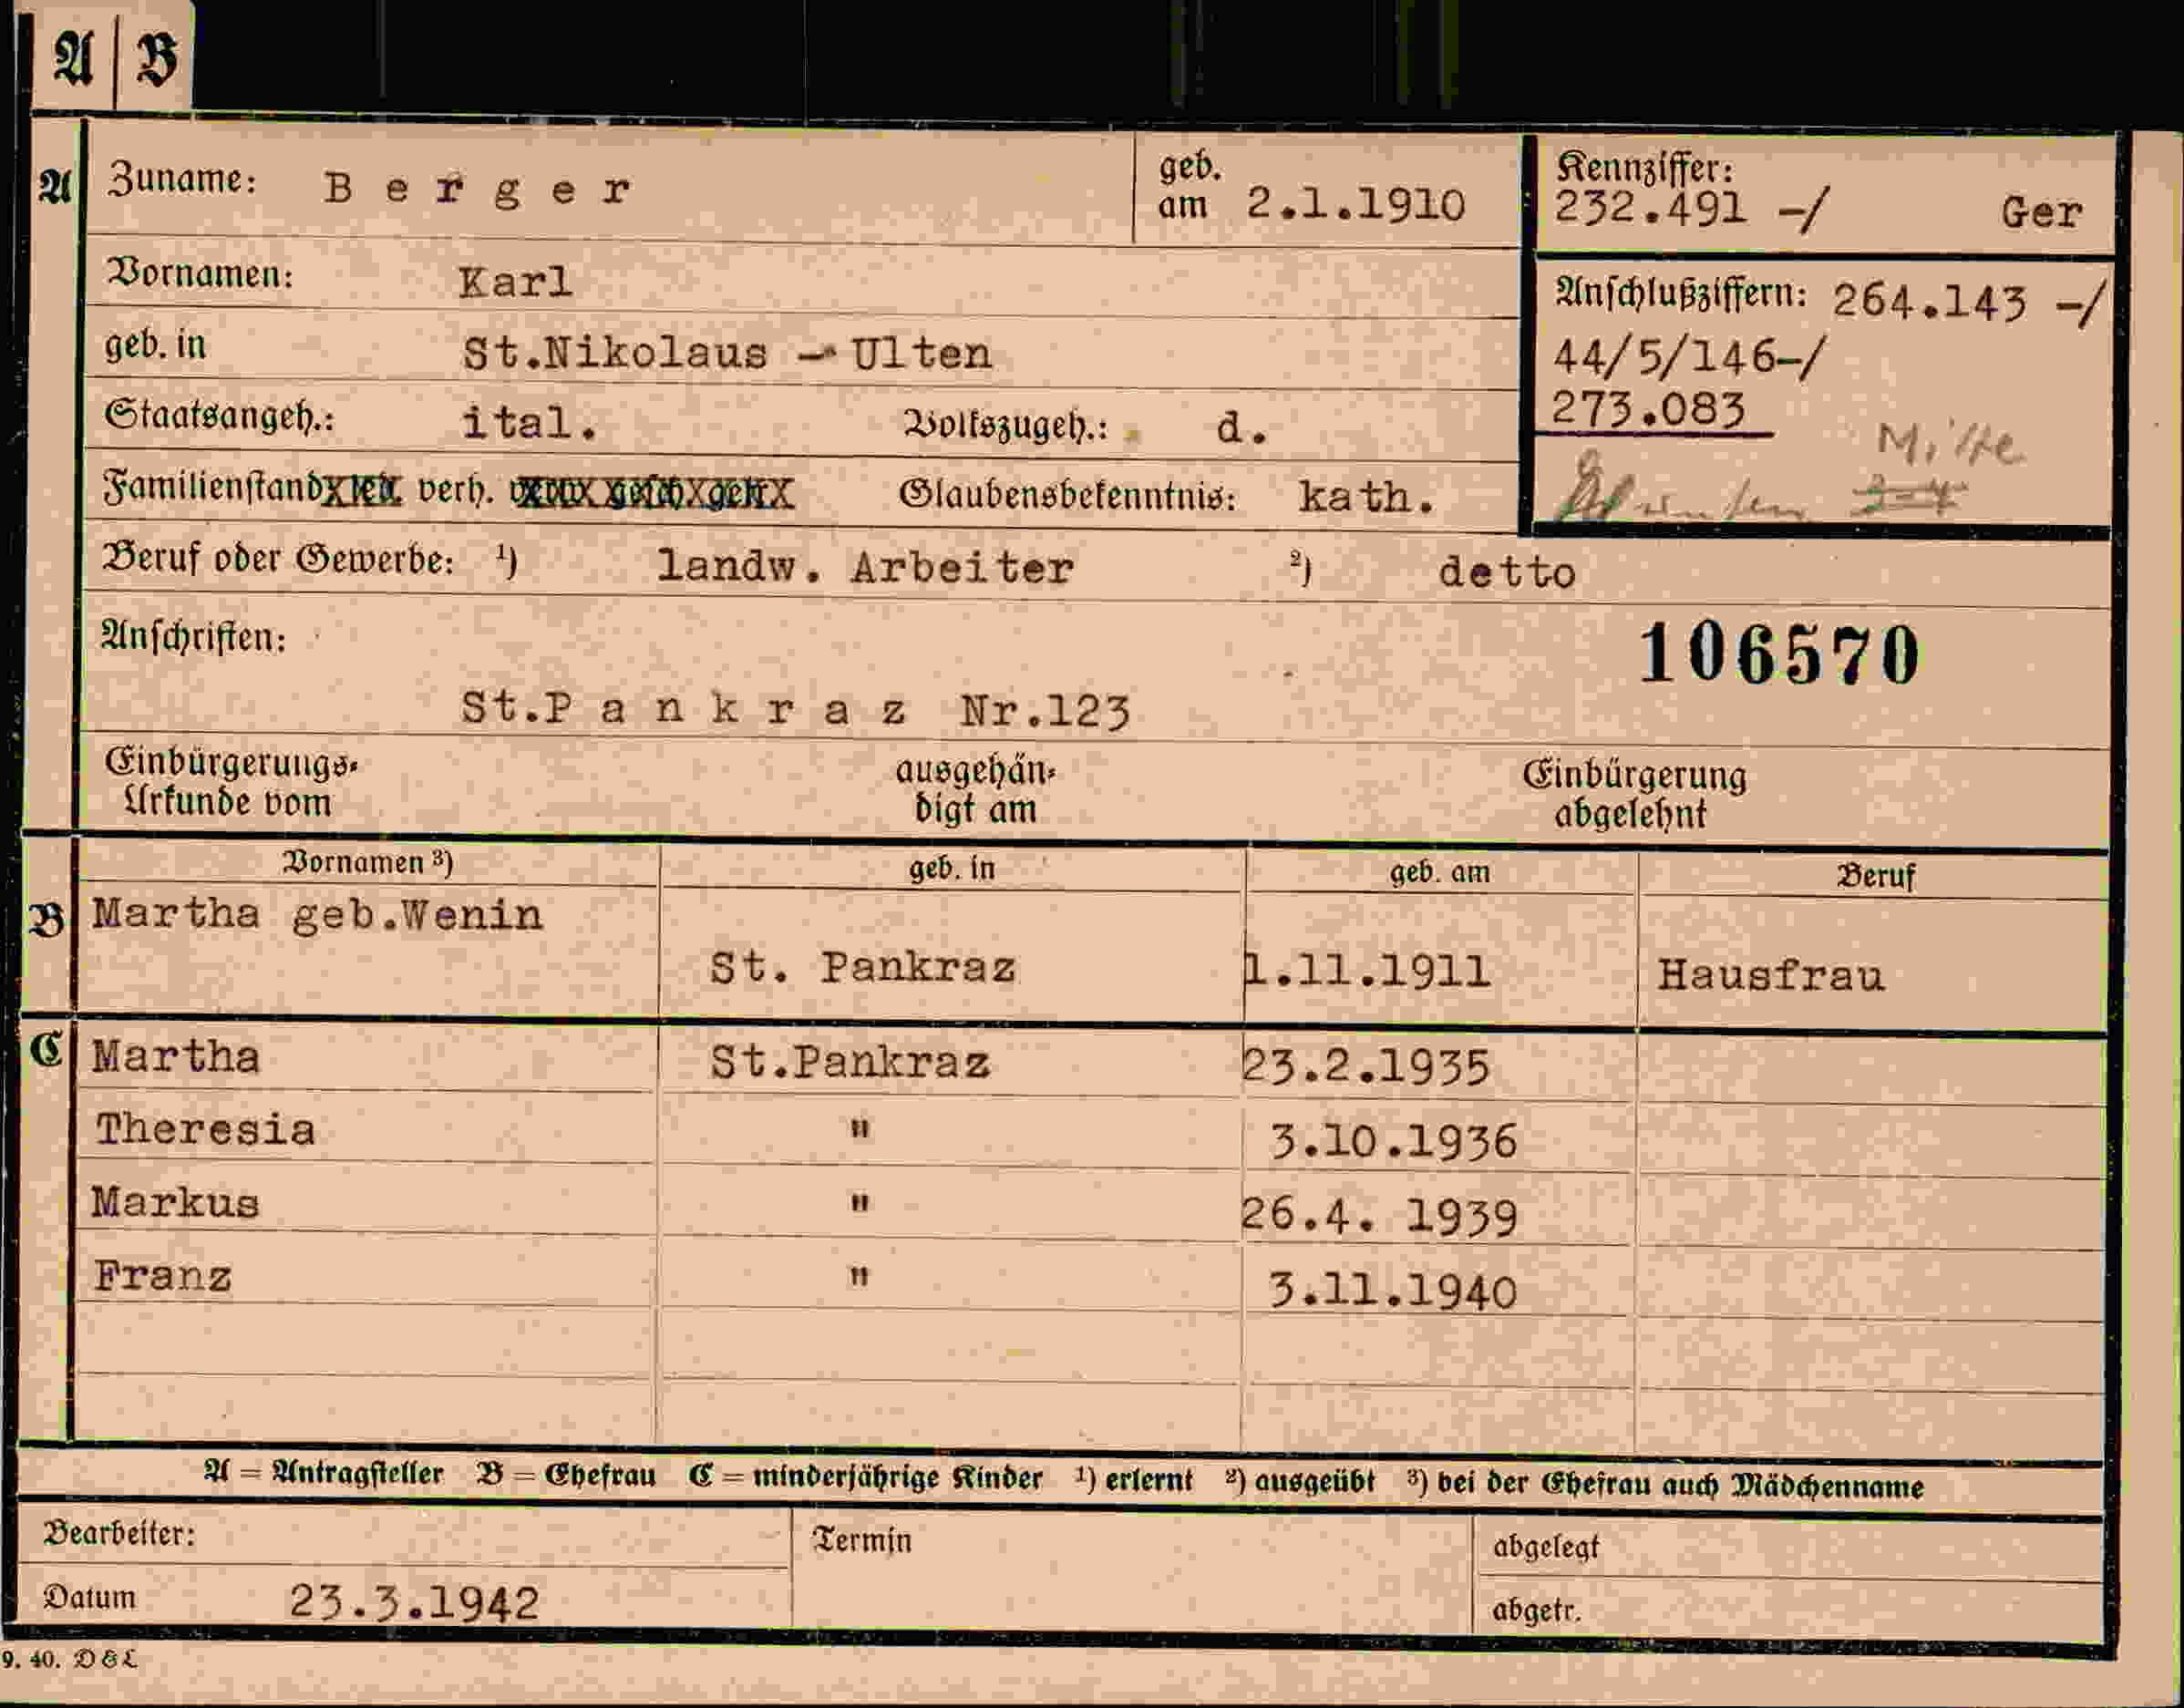 A B
A Zuname: Berger geb. am 2.1.1910 Kennziffer: 232.491 -/ Ger
Vornamen: Karl
Anschlußziffern: 264.143 -/
geb. in St.Nikolaus - Ulten
44/5/146-/
Staatsangeh.: ital. Volkszugeh.: d.
273.083
Mitte
Familienstand verh. Glaubensbekenntnis: kath.
3-4
Beruf oder Gewerbe: 1) landw. Arbeiter 2) detto
Anschriften:
106570
St.Pankraz Nr.123
Einbürgerungs-Urkunde vom ausgehändigt am Einbürgerung abgelehnt
Vornamen 3) geb. in geb. am Beruf
B Martha geb.Wenin
St. Pankraz 1.11.1911 Hausfrau
C Martha St.Pankraz 23.2.1935
Theresia " 3.10.1936
Markus " 26.4. 1939
Franz " 3.11.1940
A = Antragsteller B = Ehefrau C = minderjährige Kinder 1) erlernt 2) ausgeübt 3) bei der Ehefrau auch Mädchenname
Bearbeiter: Termin abgelegt
Datum 23.3.1942 abgetr.
9. 40. D&L